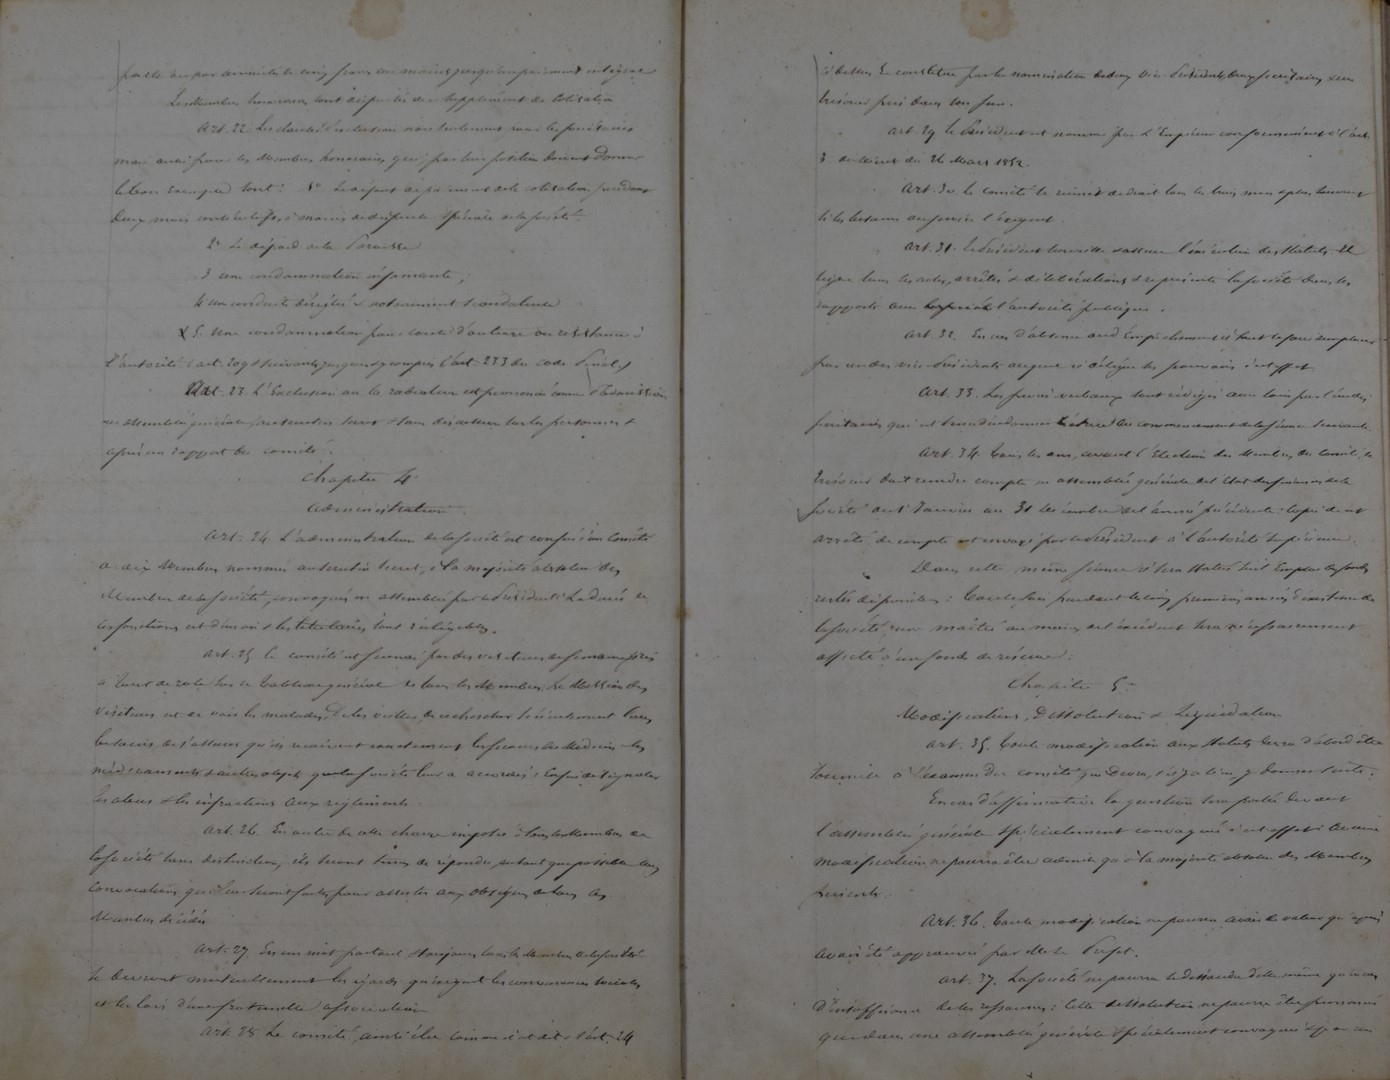 par annuités de cinq francs au moins jusqu'au paiement intégral
Les Membres honoraires sont dispensés de supplément de Cotisation
Art. 22. Les d'exclusion non seulement pour les
mais aussi pour les Membres honoraires qui par leur position doivent donner
le bon exemple sont : 1° Le défaut de paiement de la cotisation pendant
deux mois à moins de dispense spéciale de la Société
2° Le départ de la Paroisse
3 une condamnation infamante ;
4 une conduite déréglée & notoirement scandaleuse
5. Une condamnation pour d'outrage ou résistance à
l'autorité (art. 209 & suivants jusques & compris l'art. 233 du Code Pénal)
Art. 23. L'Exclusion ou la radiation est prononcée comme l'admission
en assemblée générale au scrutin secret & sans discussion sur les personnes &
après un rapport du comité.
Chapitre 4
Administration
Art. 24 L'administration de la Société est confiée à un Comité
de dix Membres nommés au scrutin secret, à la majorité absolue des
Membres de la Société, convoqués en assemblée par le Président. La durée de
ces fonctions est d'un an & les titulaires sont rééligibles.
Art. 25 Le comité est par des visiteurs de semaine pris
à tour de rôle sur le Tableau général de tous les Membres. La Mission des
visiteurs est de voir les malades, de les veiller, de rechercher leurs
besoins, de s'assurer qu'ils reçoivent exactement les secours du Médecin les
médicaments & autres objets que la Société leur a accordés ; Enfin de signaler
les abus & les infractions aux règlements.
Art. 26. En outre de cette charge imposée à tous les Membres de
la Société sans distinction, ils seront tenus de répondre, autant que possible aux
Convocations qui leur seront faites pour assister aux obsèques de tous les
Membres décédés
Art. 27. En un mot partout & toujours tous les Membres de la Société
se devront mutuellement les égards qu'exigent les convenances sociales
et les lois d'une fraternelle association
Art. 28 Le comité, ainsi élu comme il est dit à l'art. 24
se constitue par la nomination de deux Vice-Présidents, deux secrétaires & un
trésorier pris dans son sein.
Art. 29 Le Président est nommé par l'Empereur conformément à l'art.
3 du décret du 26 Mars 1852.
Art. 30. Le comité se réunit de droit tous les trois mois & plus souvent
si les besoins du service l'exigent.
Art. 31. Le Président surveille & assure l'exécution des Statuts. Il
signe tous les actes, arrêtés & délibérations & représente la Société dans les
rapports avec l'autorité publique.
Art. 32. En cas d'absence ou d'empêchement il peut se faire remplacer
par un des vice-Présidents auquel il délègue ses pouvoirs à cet effet
Art. 33. Les procès-verbaux sont rédigés avec soin par l'un des
secrétaires qui en au commencement de la séance suivante
Art. 34. Tous les ans, avant l'Election des Membres du Comité, le
Trésorier doit rendre compte en assemblée générale de l'état des finances de la
Société du 1er Janvier au 31 décembre de l'année précédente ; copie de cet
arrêté de compte est envoyé par le Président à l'autorité supérieure.
Dans cette même séance il sera statué sur l'emploi des fonds
restés disponibles : Toutefois pendant les cinq premières années d'existence de
la Société une moitié au moins de l'excédent sera nécessairement
affecté à un fonds de réserve.
Chapitre 5
Modifications, Dissolution & Liquidation
Art. 35. Toute modification aux Statuts devra d'abord être
soumise à l'examen du comité qui devra, s'il y a lieu, y donner suite.
En cas d'affirmative la question sera portée devant
l'assemblée générale spécialement convoquée à cet effet. Aucune
modification ne pourra être admise qu'à la majorité absolue des Membres
présents.
Art. 36. Toute modification ne pourra avoir de valeur qu'après
avoir été approuvée par Mr le Préfet.
Art. 37. La Société ne pourra se dissoudre d'elle même qu'en cas
d'insuffisance de ses ressources ; Cette dissolution ne pourra être prononcée
que dans une assemblée générale spécialement convoquée